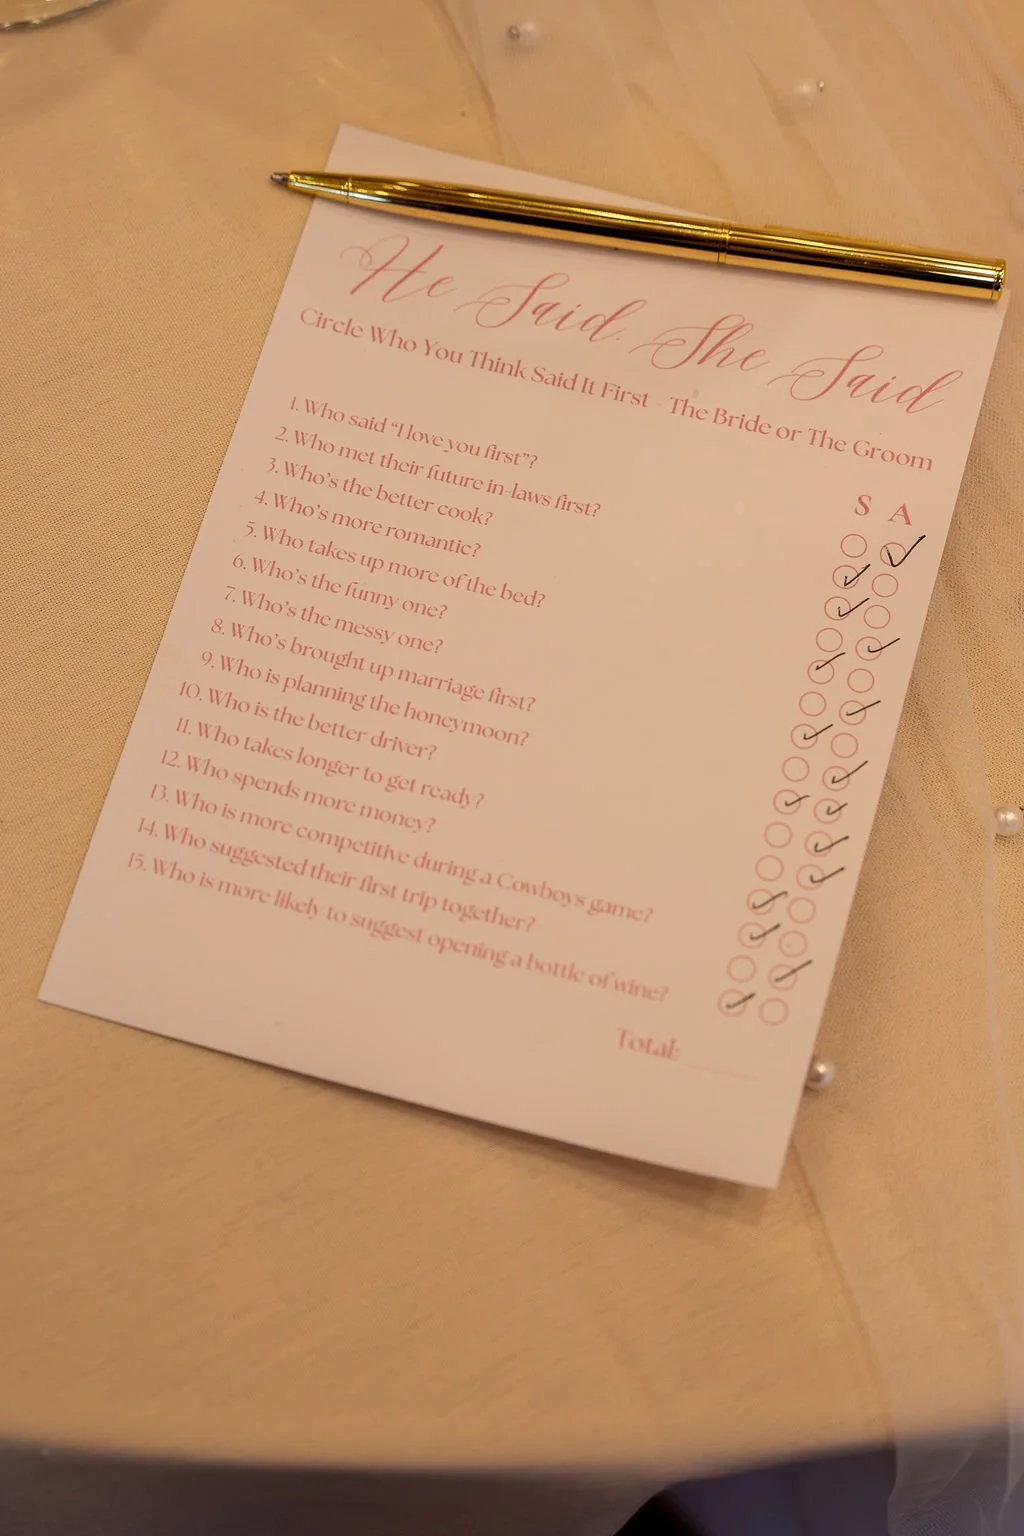 He Said, She Said
Circle Who You Think Said It First - The Bride or The Groom
S A
1. Who said “I love you first”?
2. Who met their future in-laws first?
3. Who's the better cook?
4. Who's more romantic?
5. Who takes up more of the bed?
6. Who's the funny one?
7. Who's the messy one?
8. Who's brought up marriage first?
9. Who is planning the honeymoon?
10. Who is the better driver?
11. Who takes longer to get ready?
12. Who spends more money?
13. Who is more competitive during a Cowboys game?
14. Who suggested their first trip together?
15. Who is more likely to suggest opening a bottle of wine?
Total: